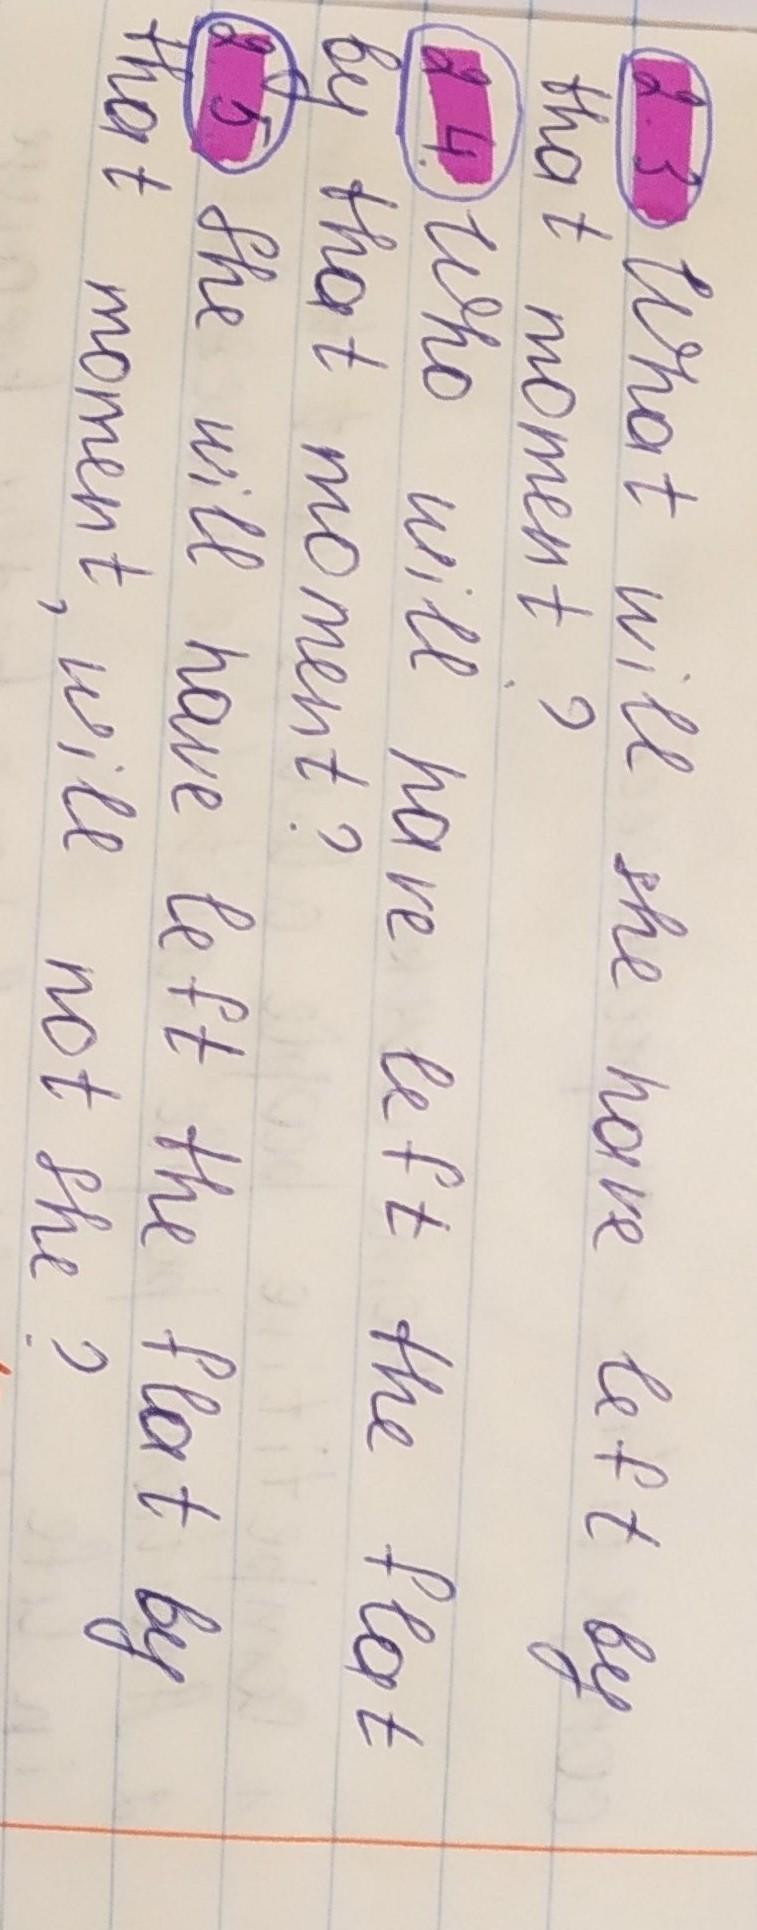 2.3 What will she have left by
that moment?
2.4. Who will have left the flat
by that moment?
2.5 She will have left the flat by
that moment, will not she?